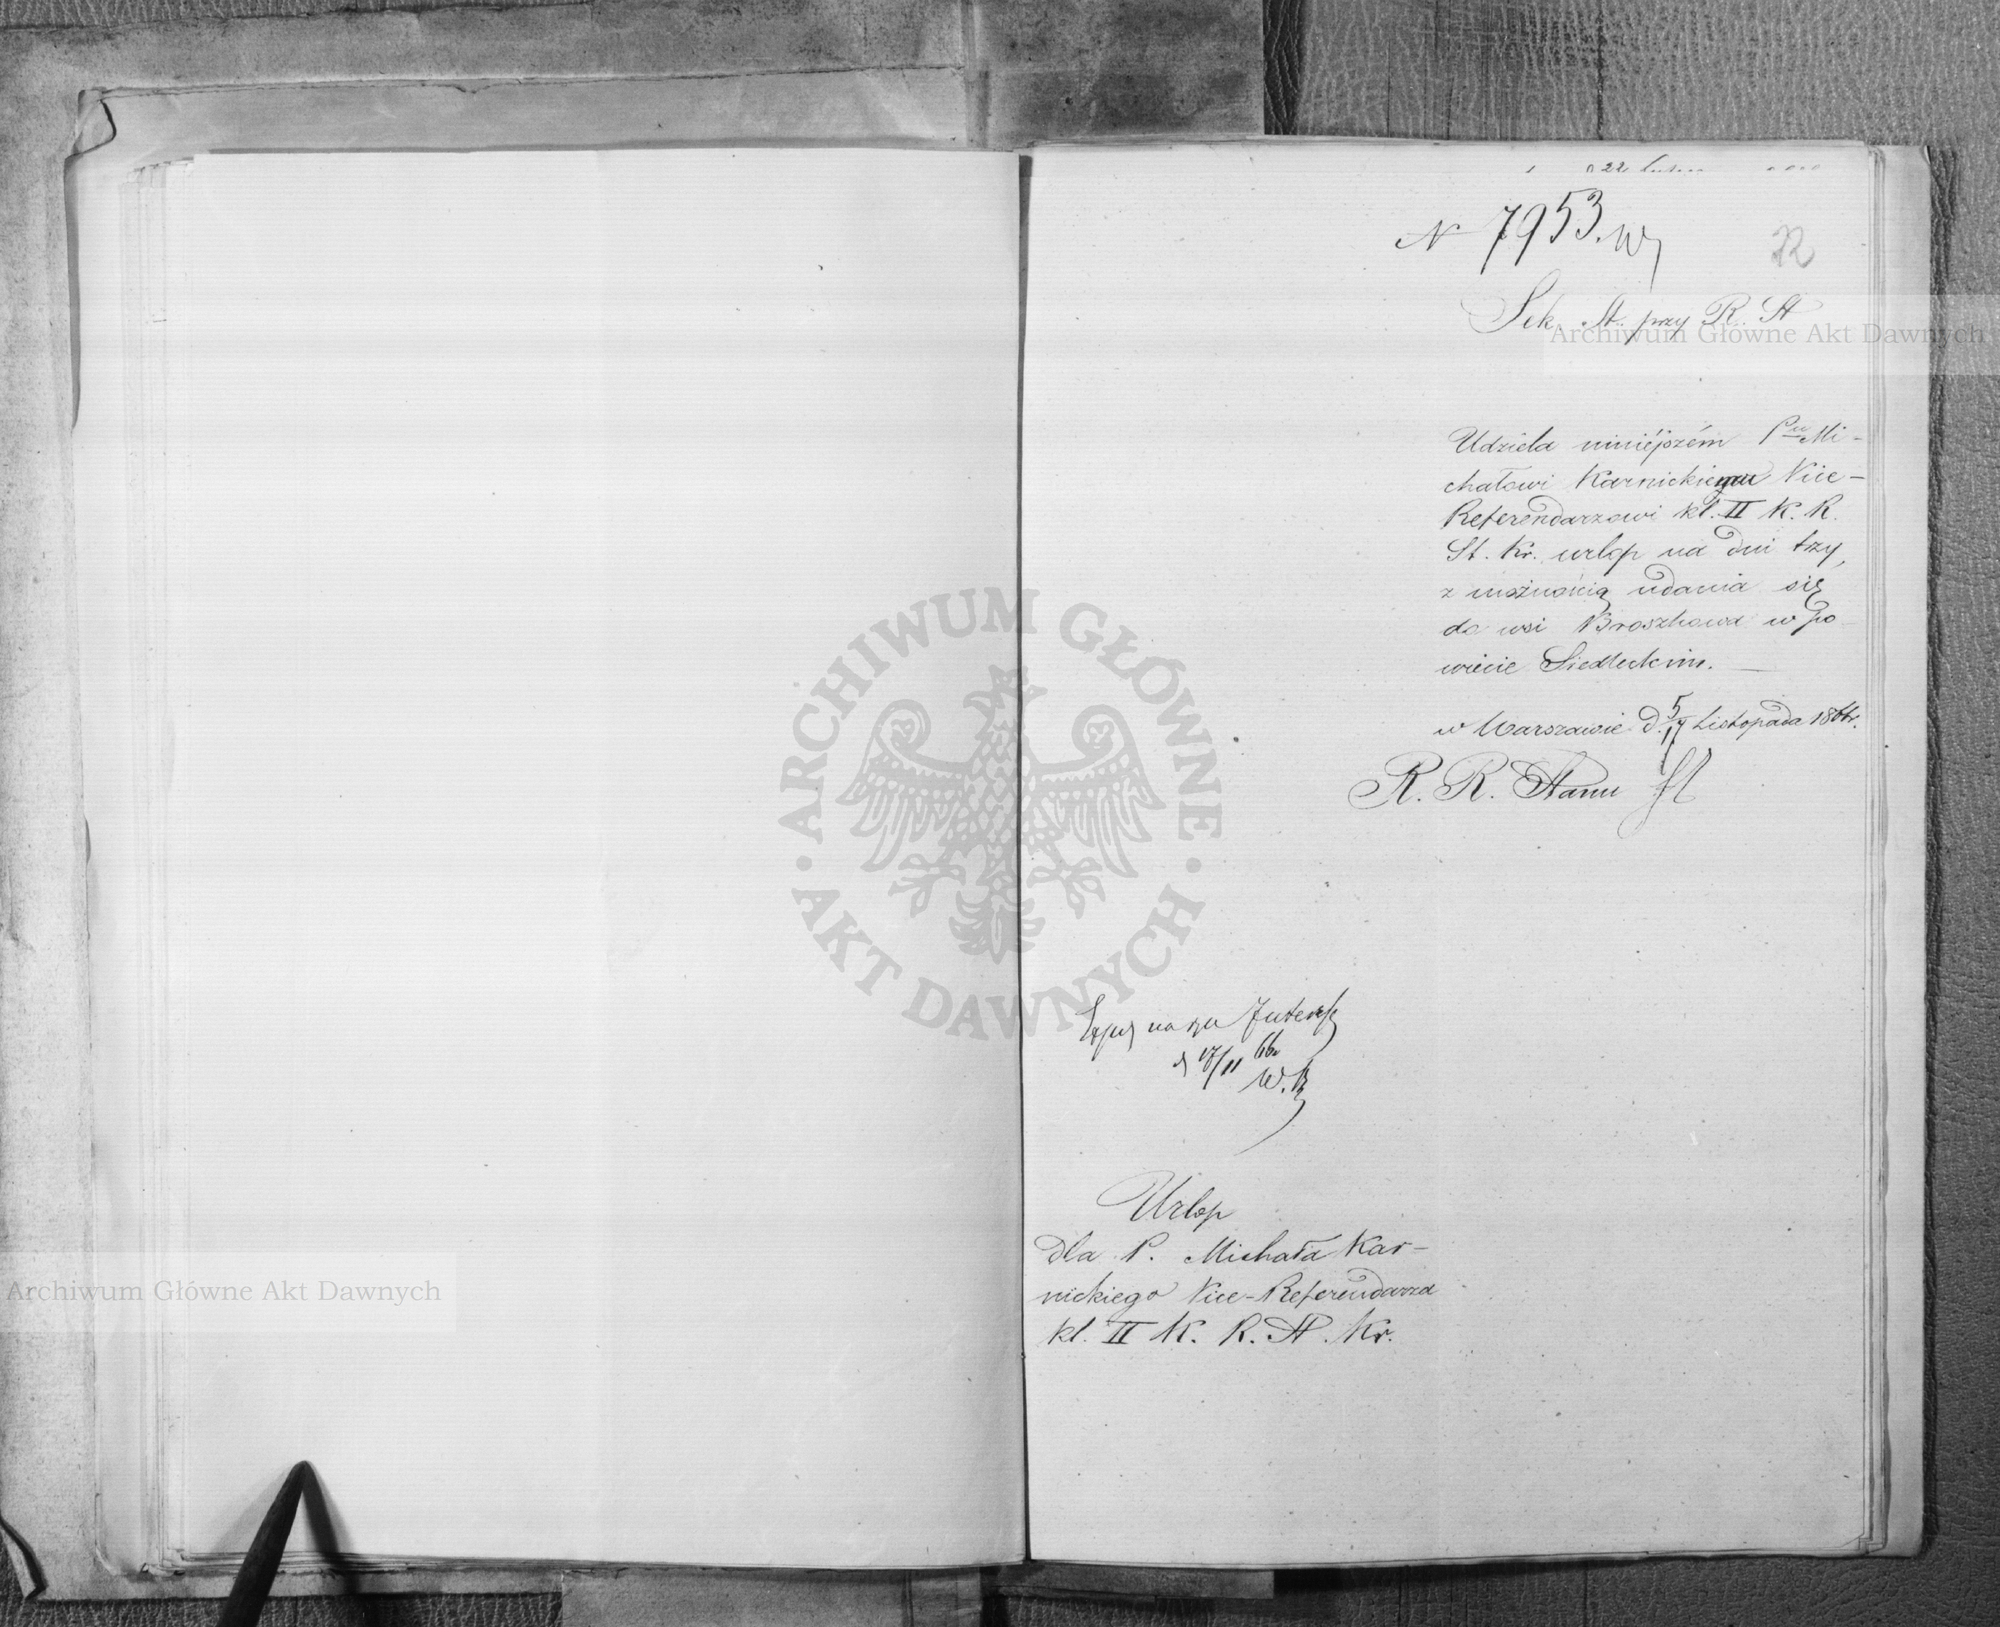 22
N 7953.
72
Sek. St. przy R. St
Archiwum Główne Akt Dawnych
Udziela niniéjszém Pnu Mi-
chałowi Karnickiemu Vice-
Referendarzowi kl. II K. R.
St. Kr. urlop na dni trzy,
z możnością udania się
do wsi Broszkowa w po-
wiecie Siedleckim.
w Warszawie d. 5/17 Listopada 1866r.
R. R. Stanu
ARCHIWUM GŁÓWNE
AKT DAWNYCH
d 17/11 66r
W. R
Urlop
dla P. Michała Kar-
nickiego Vice-Referendarza
kl. II K. R. St. Kr.
Archiwum Główne Akt Dawnych